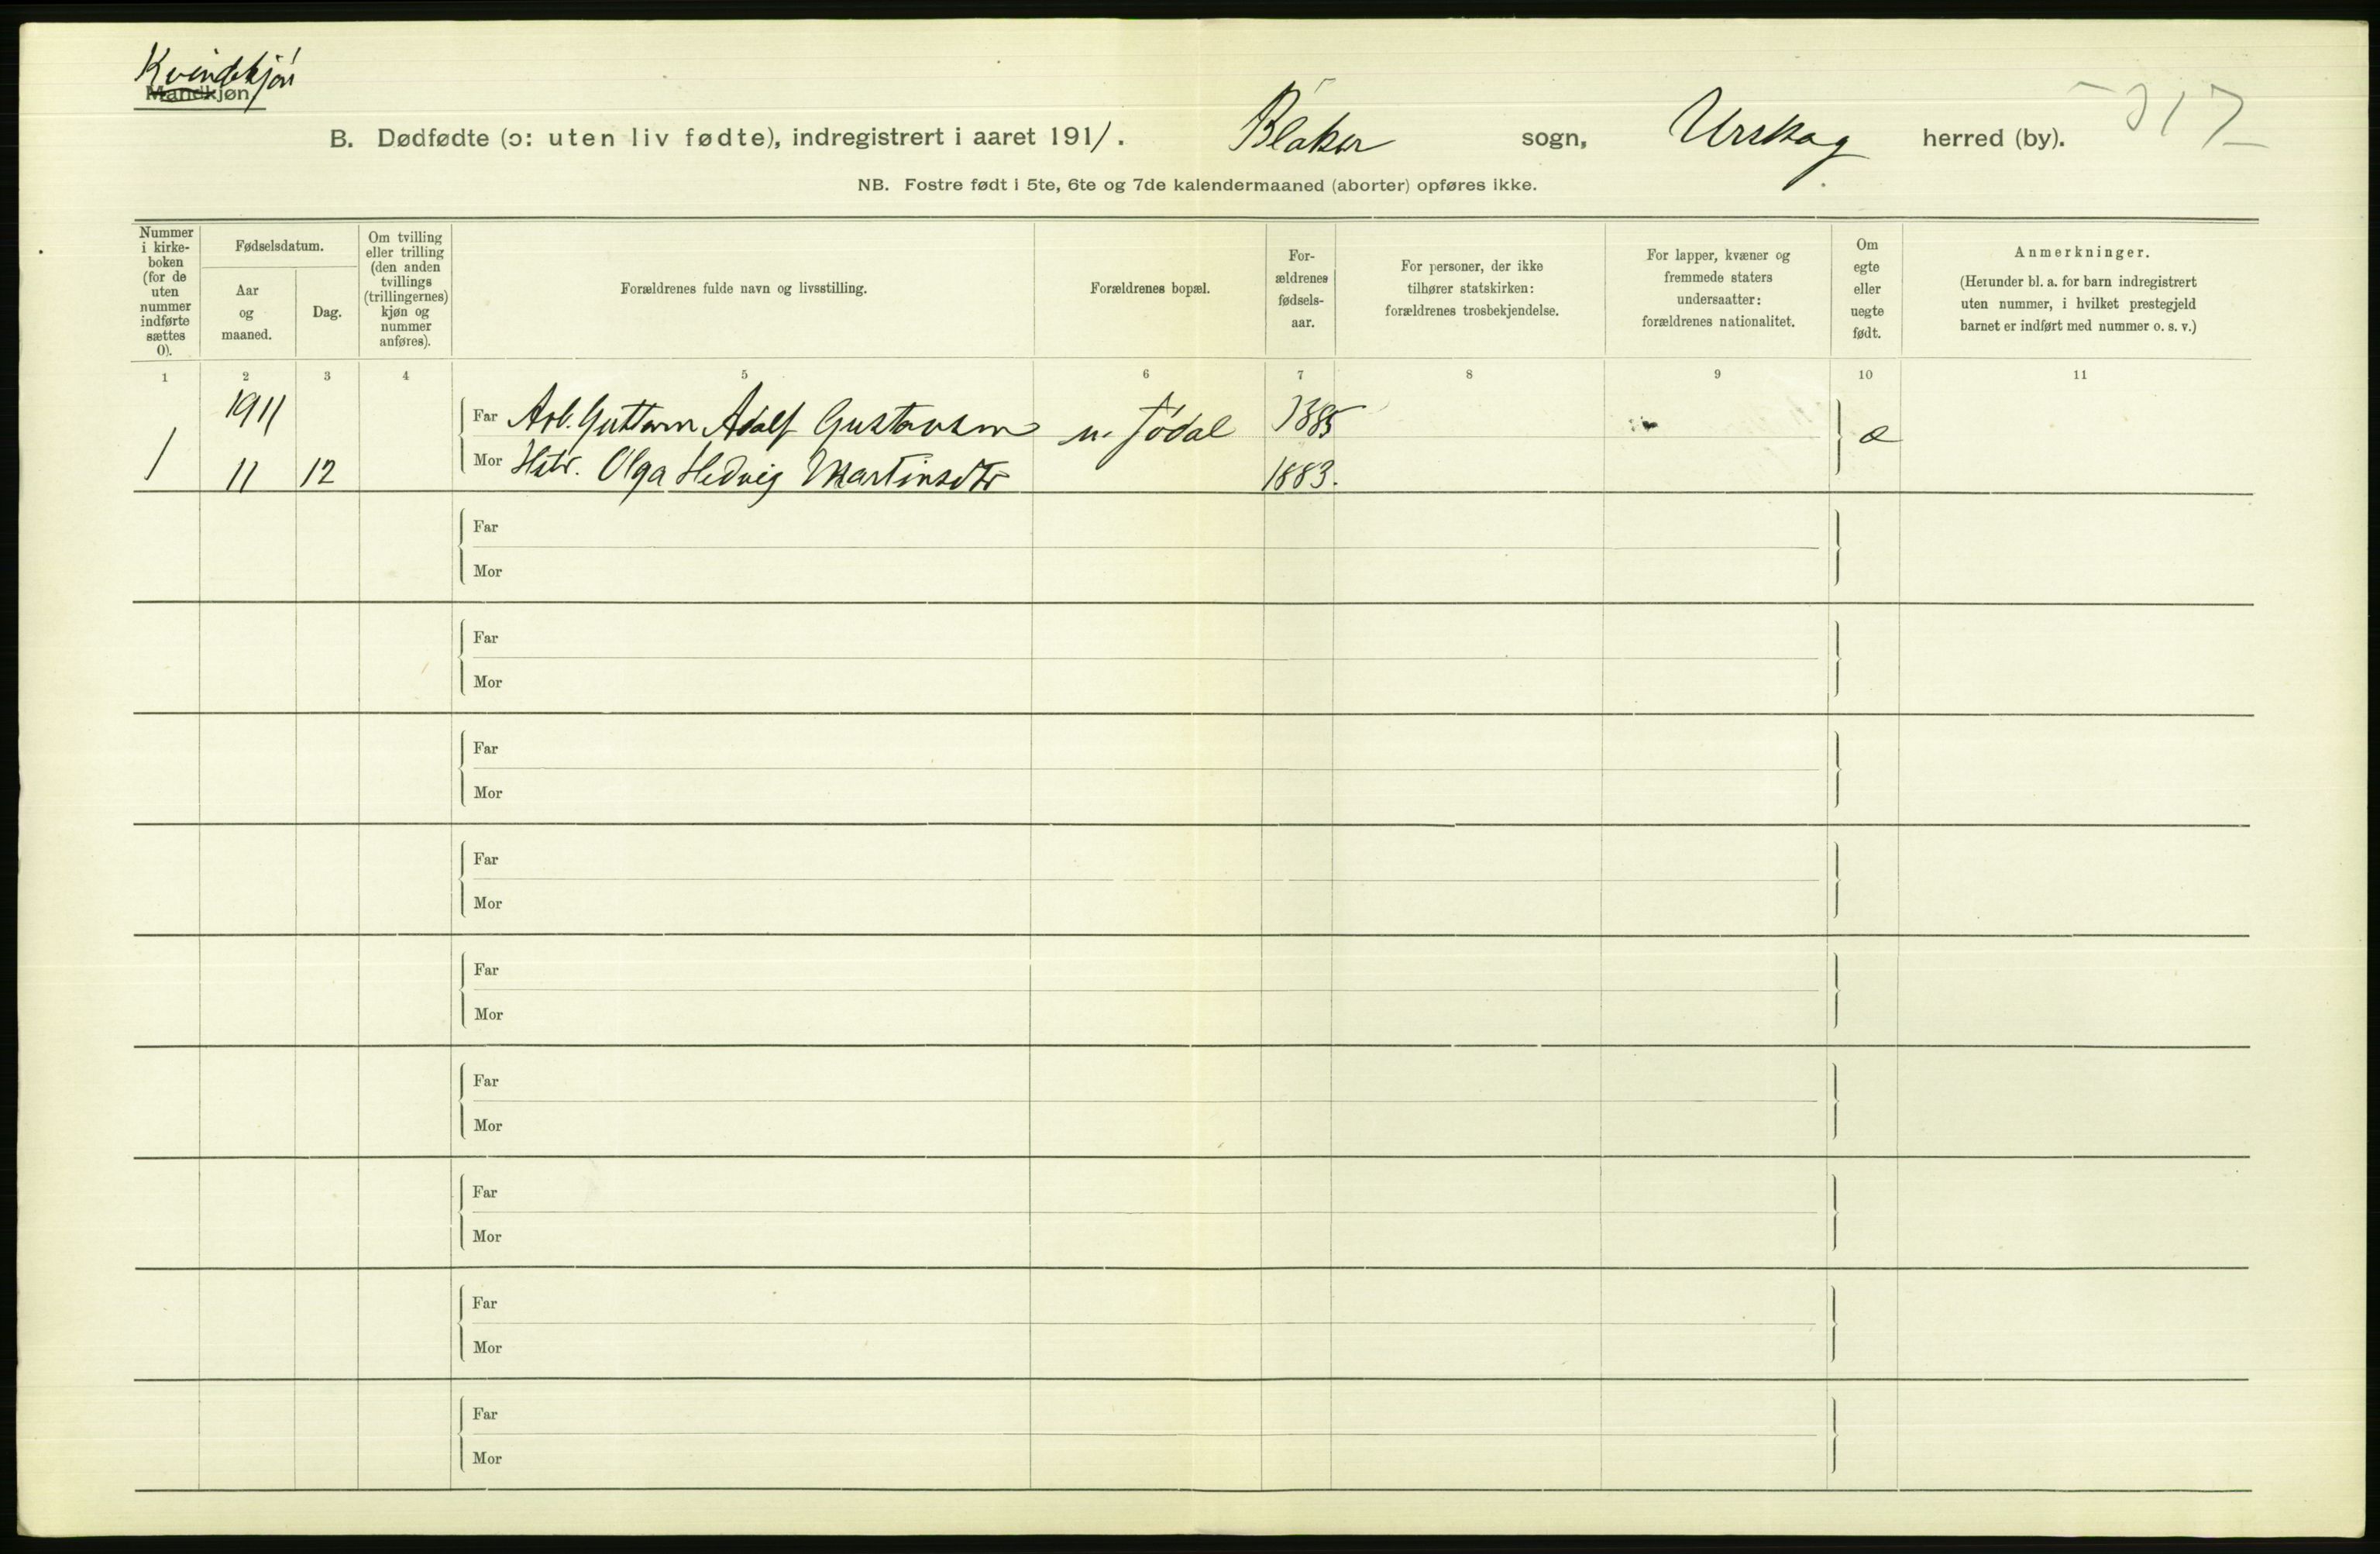 Kvindekjøn
Mandkjøn
B. Dødfødte (ɔ: uten liv fødte), indregistrert i aaret 1911. Blaker sogn, Urskog herred (by). 317
NB. Fostre født i 5te, 6te og 7de kalendermaaned (aborter) opføres ikke.
Nummer
i kirke-
boken
(for de
uten
nummer
indførte
sættes
0).
Fødselsdatum.
Aar
og
maaned.
Dag.
Om tvilling
eller trilling
(den anden
tvillings
(trillingernes)
kjøn og
nummer
anføres).
Forældrenes fulde navn og livsstilling.
Forældrenes bopæl.
For-
ældrenes
fødsels-
aar.
For personer, der ikke
tilhører statskirken:
forældrenes trosbekjendelse.
For lapper, kvæner og
fremmede staters
undersaatter:
forældrenes nationalitet.
Om
egte
eller
uegte
født.
Anmerkninger.
(Herunder bl. a. for barn indregistrert
uten nummer, i hvilket prestegjeld
barnet er indført med nummer o. s. v.)
1 2 3 4 5 6 7 8 9 10 11
1911
Far Arb. Guttorm Adolf Gustavsen n. Jødal 1885 æ
1 11 12 Mor Hstr. Olga Hedvig Martinsdtr 1883.
Far
Mor
Far
Mor
Far
Mor
Far
Mor
Far
Mor
Far
Mor
Far
Mor
Far
Mor
Far
Mor